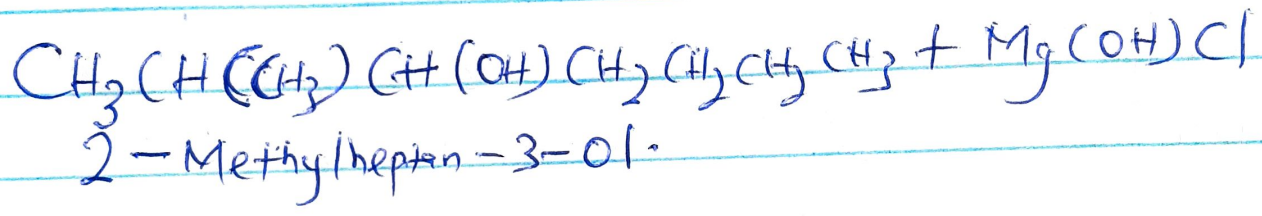 CH₃CH(CH₃)CH(OH)CH₂CH₂CH₂CH₃ + Mg(OH)Cl
2-Methylheptan-3-ol.